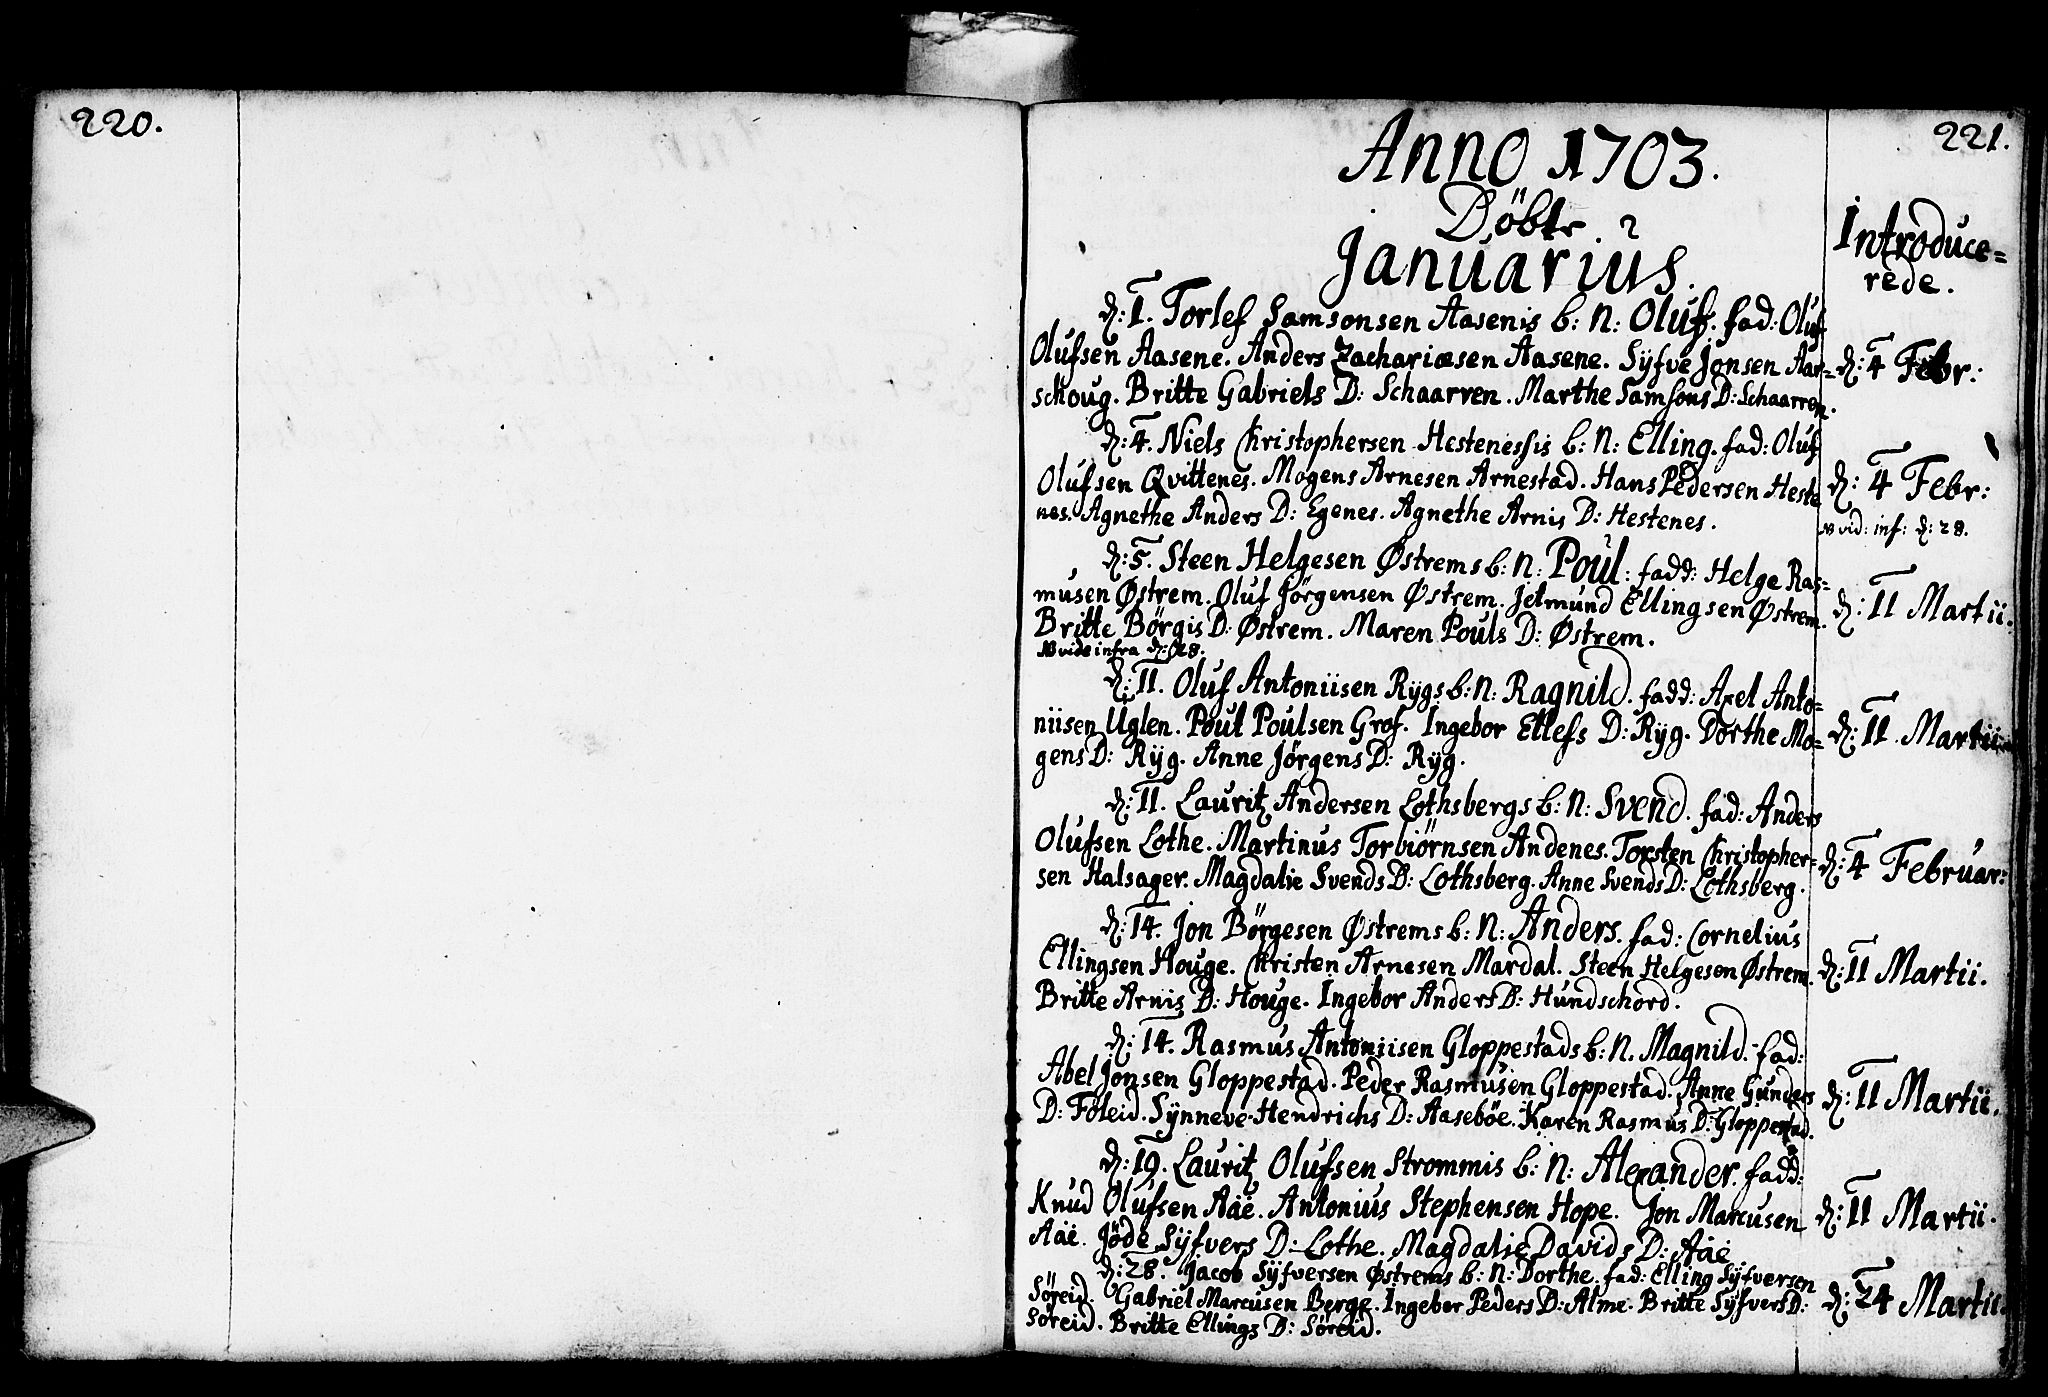 220.
221.
Anno 1703.
Döbte
Januarius.
Introduce=
rede.
d: 1. Torlef Samsonsen Aasenis b: n: Oluf. fad: Oluf
Olufsen Aasene. Anders Zachariæsen Aasene. Sÿfve Jonsen Aar=
schoug. Britte Gabriels D: Schaarren. Marthe Samsons D: Schaarren.
d: 4 Febr:
d: 4. Niels Christophersen Hestenessis b: n: Elling. fad: Oluf
Olufsen Qvittenes. Mogens Arnesen Arnestad. Hans Pedersen Heste
nes. Agnethe Anders D: Egenes. Agnethe Arnis D: Hestenes.
d: 4 Febr:
NB vid: inf: d: 28.
d: 5. Steen Helgesen Østrems b: n: Poul. fadd: Helge Ras=
musen Østrem. Oluf Jörgensen Østrem. Jetmund Ellingsen Østrem.
Britte Börgis D: Østrem. Maren Pouls D: Østrem.
NB vide infra d: 28.
d: 11 Martii.
d: 11. Oluf Antoniisen Rÿgs b: n: Ragnild. fadd: Axel Anto=
niisen Uglen. Poul Poulsen Grof. Ingebor Ellefs D: Rÿg. Dorthe Mo=
gens D: Rÿg. Anne Jörgens D: Rÿg.
d: 11 Martii
d: 11. Lauritz Andersen Lothsbergs b: n: Svend. fad: Anders
Olufsen Lothe. Martinus Torbiörnsen Andenes. Torsten Christopher=
sen Halsager. Magdalie Svends D: Lothsberg. Anne Svends D: Lothsberg.
d: 4 Februar:
d: 14. Jon Börgesen Østrems b: n: Anders. fad: Cornelius
Ellingsen Houge. Christen Arnesen Mardal. Steen Helgesen Østrem.
Britte Arnis D: Houge. Ingebor Anders D: Hundschord.
d: 11 Martii.
d: 14. Rasmus Antoniisen Gloppestads b: n. Magnild. fad:
Abel Jonsen Gloppestad. Peder Rasmusen Gloppestad. Anne Gunders
D: Föleid. Sÿnneve Hendrichs D: Aaseböe. Karen Rasmus D: Gloppestad.
d: 11 Martii.
d: 19. Lauritz Olufsen Strommis b: n: Alexander. fadd:
Knud Olufsen Aae. Antonius Stephensen Hope. Jon Marcusen
Aae. Jöde Sÿfvers D: Lothe. Magdalie Davids D: Aae
d: 11 Martii.
d: 28. Jacob Sÿfversen Østrems b: n: Dorthe. fad: Elling Sÿfversen
Söreid. Gabriel Marcusen Berge. Ingebor Peders D: Alme. Britte Sÿfvers D:
Söreid. Britte Ellings D: Söreid.
d: 24 Martii.